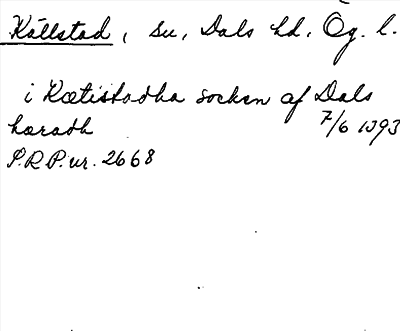 Källstad, sn, Dals hd, Ög. l.
i Kætilstadha socken af Dals
haradh 7/6 1393
S.R.P. nr. 2668